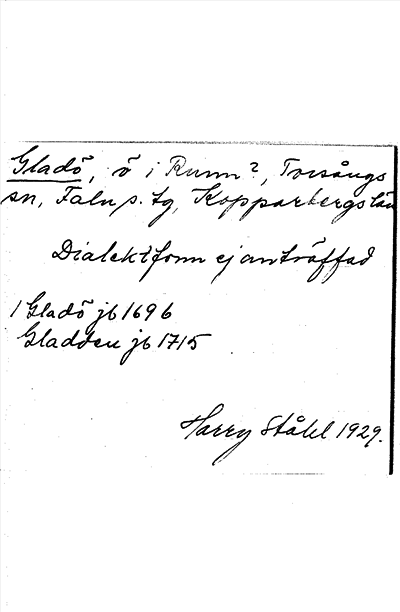 Gladö, ö i Runn?, Torsångs
sn, Falu s. tg, Kopparbergs län
Dialektform ej anträffad
1 Gladö jb 1696
Gladden jb 1715
Harry Ståhl 1929.